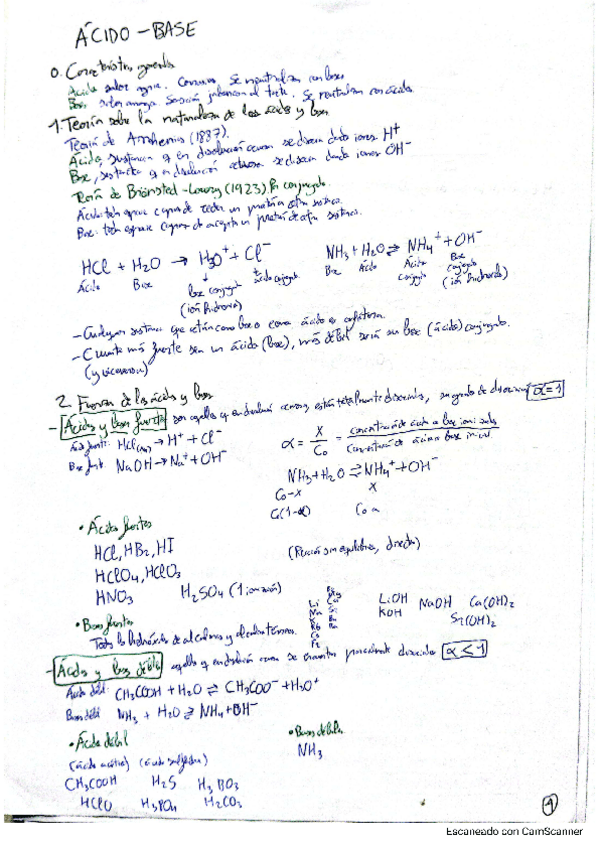 ÁCIDO - BASE
0. Características generales
Ácido sabor agrio. Corrosivos. Se neutralizan con bases
Bases sabor amargo. Sensación jabonosa al tacto. Se neutralizan con ácidos
1. Teoría sobre la naturaleza de los ácidos y bases
Teoría de Arrhenius (1887).
Ácido, sustancia q en disolución acuosa se disocia dando iones H⁺
Base, sustancia q en disolución acuosa se disocia dando iones OH⁻
Teoría de Brönsted-Lowry (1923). Par conjugado.
Ácido: toda especie capaz de ceder un protón a otra sustancia.
Base: toda especie capaz de aceptar un protón de otra sustancia.
HCl + H₂O → H₃O⁺ + Cl⁻ NH₃ + H₂O ⇌ NH₄⁺ + OH⁻
Ácido Base Base Ácido Ácido Base
base conjugada ácido conjugado conjugado conjugada
(ión hidronio) (ión hidroxilo)
- Cualquier sustancia que actúan como base o como ácido es
- Cuanto más fuerte sea un ácido (base), más débil será su base (ácido) conjugado.
(y viceversa)
2. Fuerza de los ácidos y bases
- Ácidos y bases fuertes son aquellos q en disolución acuosa están totalmente disociados, su grado de disociación α=1
Ácido fuerte: HCl(aq) → H⁺ + Cl⁻
Base fuerte NaOH → Na⁺ + OH⁻
α = X/C₀ = concentración de ácido o base ionizada / concentración de ácido o base inicial
NH₃ + H₂O ⇌ NH₄⁺ + OH⁻
C₀-x x
C₀(1-α) C₀α
• Ácidos fuertes
HCl, HBr, HI (Reacción sin equilibrio, directa)
HClO₄, HClO₃
HNO₃ H₂SO₄ (1 ionización)
LiOH NaOH Ca(OH)₂
KOH Sr(OH)₂
• Bases fuertes
Todos los hidróxidos de alcalinos y alcalinotérreos.
- Ácidos y bases débiles aquellos q en disolución acuosa se encuentran parcialmente disociados α<1
Ácido débil: CH₃COOH + H₂O ⇌ CH₃COO⁻ + H₃O⁺
Base débil NH₃ + H₂O ⇌ NH₄ + OH⁻
• Ácido débil • Bases débiles
(ácido acético) (ácido sulfhídrico) NH₃
CH₃COOH H₂S H₃BO₃
HClO H₃PO₄ H₂CO₃
1
Escaneado con CamScanner